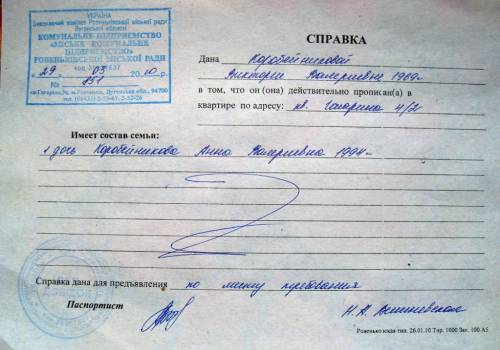 УКРАЇНА
Виконавчий комітет Ровеньківської міської ради
Луганської області
КОМУНАЛЬНЕ ПІДПРИЄМСТВО
«МІСЬКЕ КОМУНАЛЬНЕ
ПІДПРИЄМСТВО»
РОВЕНЬКІВСЬКОЇ МІСЬКОЇ РАДИ
код
« 29 » 03 2010 р.
№ 851
СПРАВКА
Дана Коробейниковой
Виктории Валериевне 1969г
в том, что он (она) действительно прописан(а) в
квартире по адресу: кв. Гагарина 4/2
Имеет состав семьи:
1 дочь Коробейникова Анна Валериевна 1994г
Справка дана для предъявления по месту требования
Паспортист
Н. А.
Ровеньковская тип. 26.01.10 Тир. 1000 Зак. 100 А5